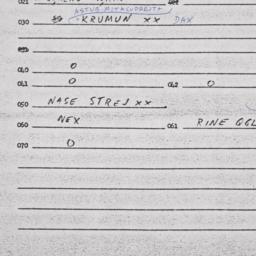 021
030 KRUMUN xx DAX
040 0
041 0 042 0
050 NASE STREJ xx
060 NEX 061 RINE GGL
070 0